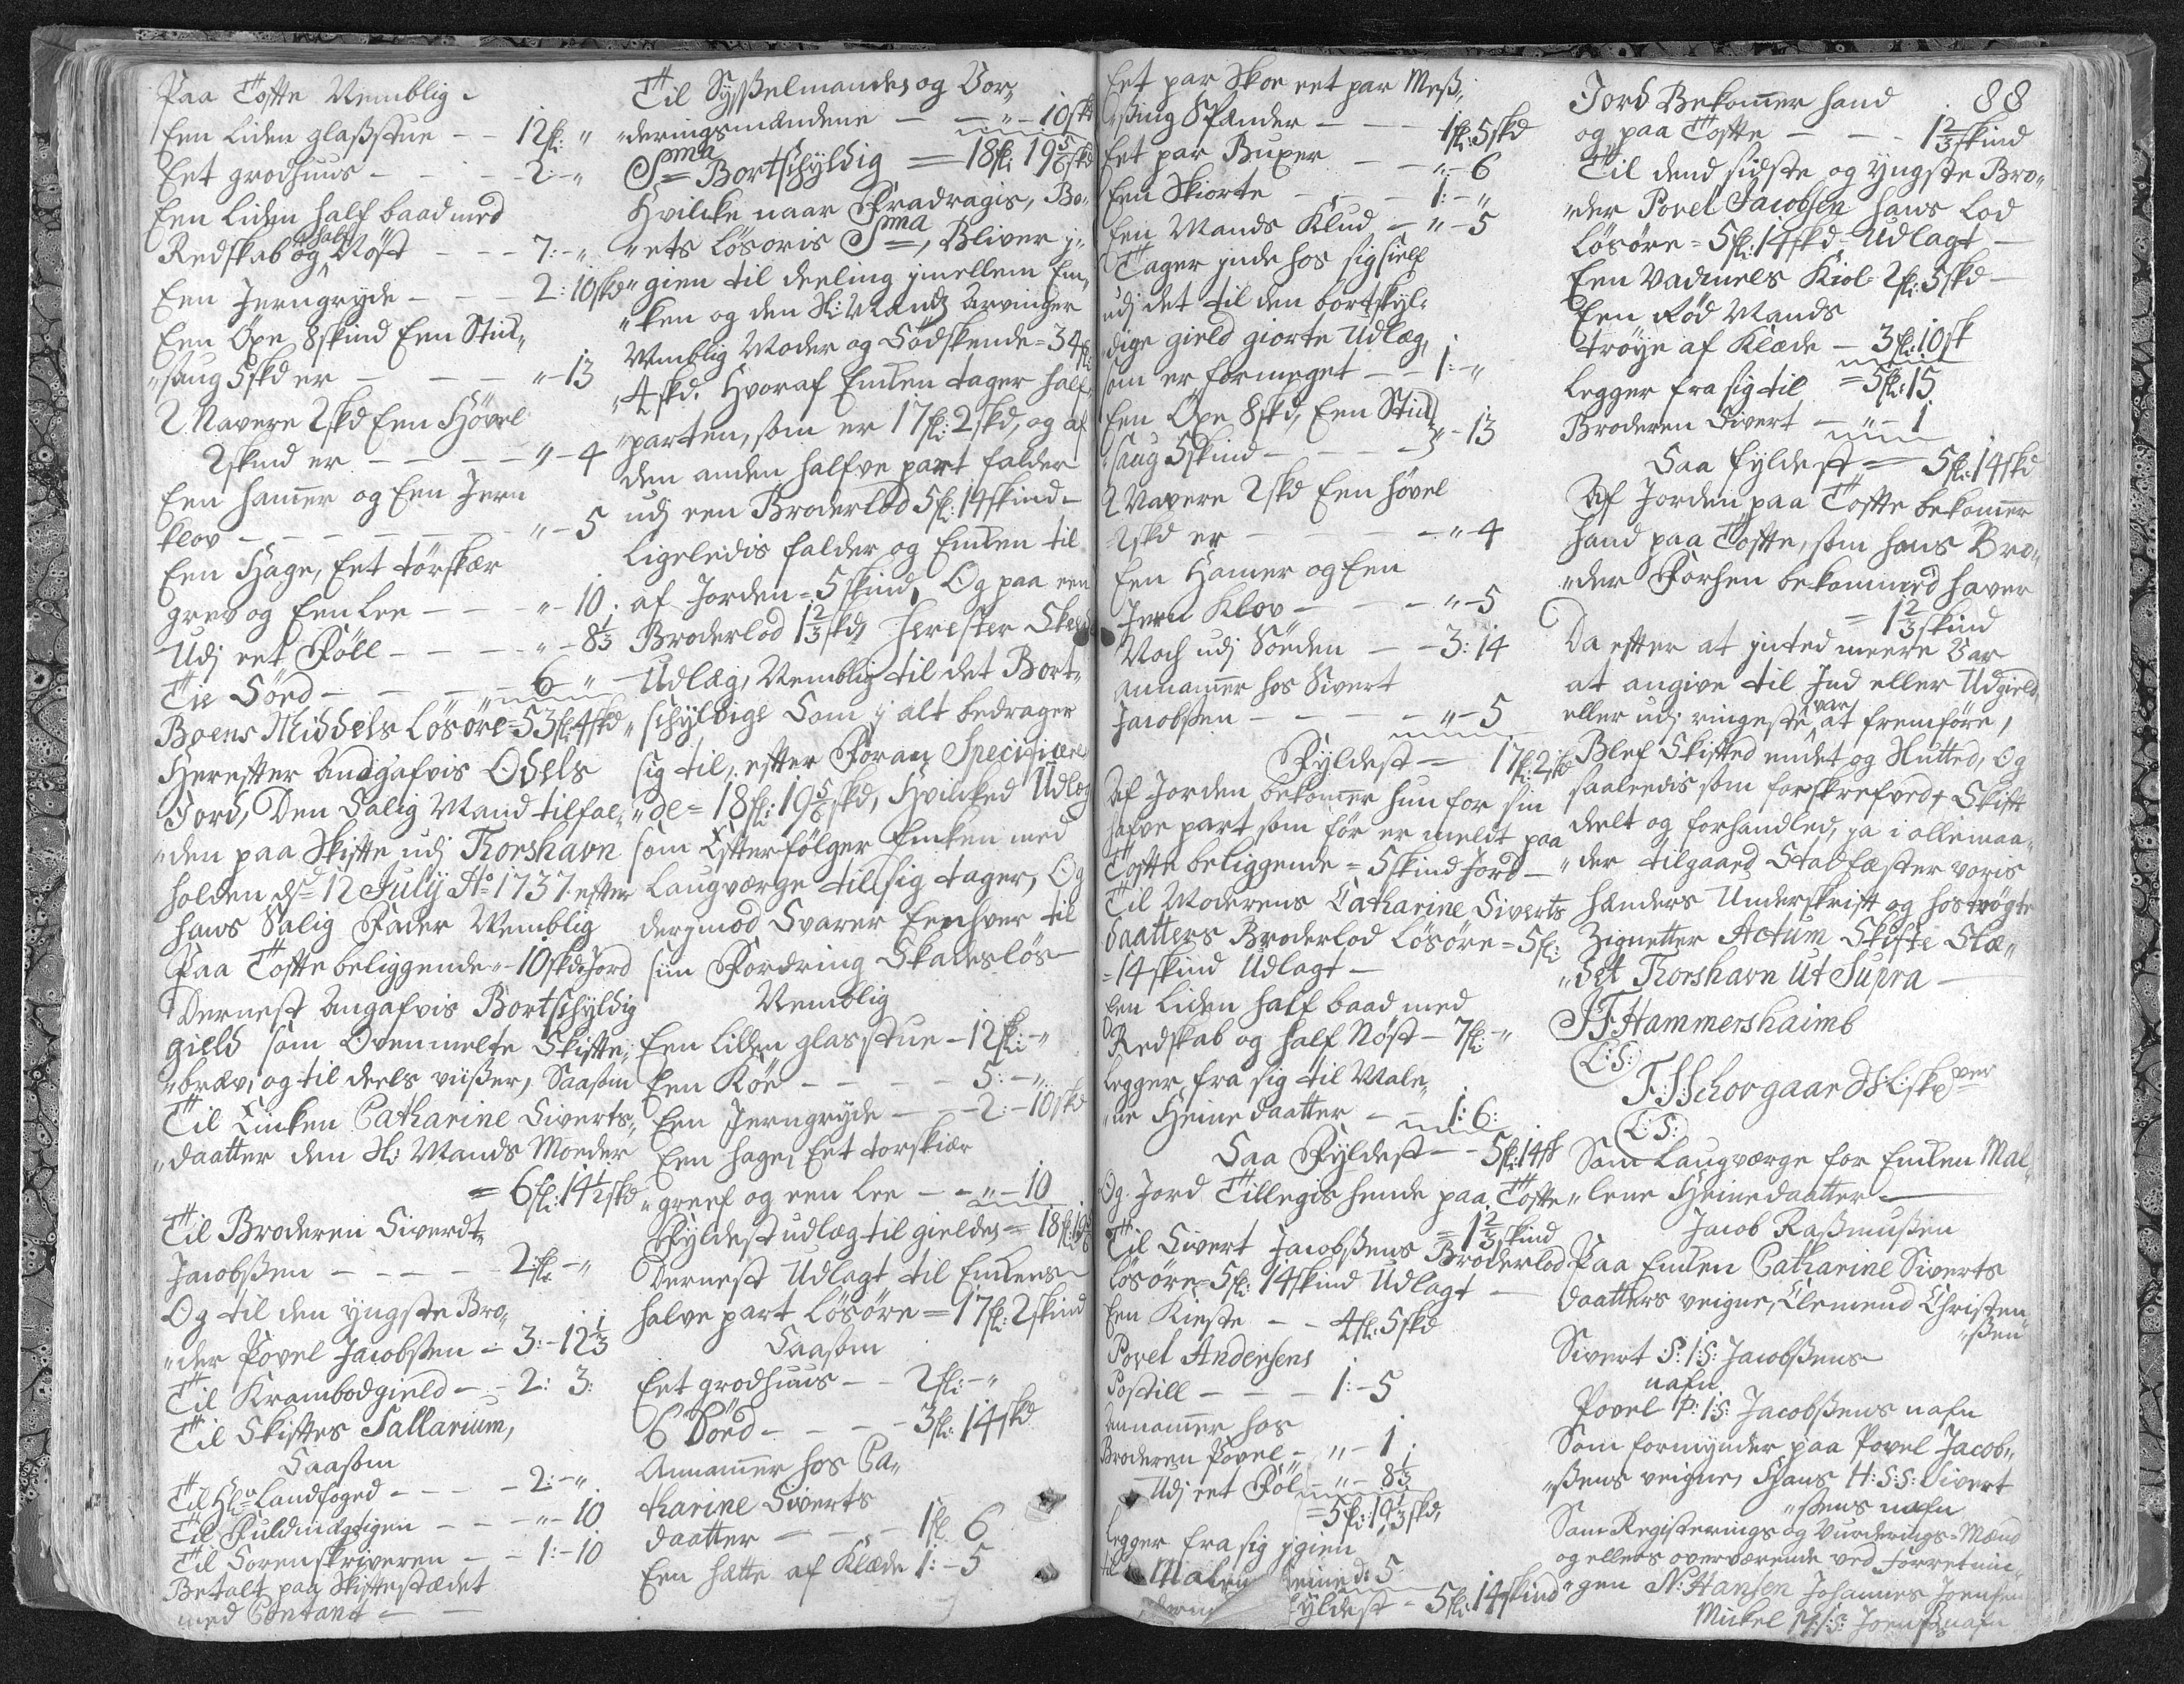 Paa Tofte Nemblig
Een liden glasstue - - 12fl: "
Eet grødhuus - - - 2:- "
Een liden half baad med
Redskab og half Nøst - - - 7:- "
Een Jerngryde - - - 2:10skd
Een Øxe 8skind Een Stik„
„saug 5skd er - - - "-13
2 Navere 2skd Een Høvel
2skind er - - - - "-4
Een hamer og Een Jern
klov - - - - - - "-5
Een Hage, Eet törskær
grev og Een Lee - - - "-10
Udj eet Föll - - - - "-8⅓
Tie Sörd - - - - 6 "
Boens Middels Løsøre = 53fl:4skd
Herefter Andgafvis Odels
Jord, Den Salig Mand tilfal„
„den paa Skifte udj Thorshavn
holden dn 12 July Ao 1737 efter
hans Salig Fader Nemblig
Paa Tofte beliggende - 10skd: Jord
Dernest Angafvis Bortschyldig
gield som Ovenmelte Skifte„
„brev, og til deels viißer, Saasom
Til Enken Catharine Siverts„
„daatter den Sl: Mands Moeder
= 6fl:14½skd
Til Broderen Siverdt
Jacobßen - - - - 2fl:- "
Og til den yngste Bro„
„der Povel Jacobßen - 3:-12⅓
Til Krambodgield - - 2: 3:
Til Skiftes Sallarium,
Saasom
Til Hr Landfoged - - - 2:- "
Til Fuldmægtigen - - - "-10
Til Sorenskriveren - - 1:-10
Betalt paa Skiftestædet
med Contant - -
Til Sysselmandes og Vor„
„deringsmændene - - "-10skd
Sma Bortschyldig = 18fl: 19⅚skd
Hvilcke naar Fradragis, Bo„
„ets løsøris Sma, Bliver j„
„gien til deeling jmellem En„
„ken og den Sl: Mands Arvinger
Nemblig Moder og Södskende = 34fl:
„4skd. Hvoraf Encken tager half„
„parten, som er 17fl: 2skd, og af
den anden halfve part falder
udj een Broderlod 5fl: 14skind -
Ligeledis falder og Encken til
af Jorden = 5skind, Og paa een
Broderlod 1⅔skd, herefter Skeede
Udlæg, Nemblig til det Bort„
„schyldige Som j alt bedrager
sig til, efter Foran Specificere„
„de = 18fl: 19⅚skd, Hvilcked Udlæg
som Efterfölger Encken med
Laugværge till sig tager, Og
derjmod Svarer Eenhver til
sin Fordring Skadesløs
Nemblig
Een liden glasstue - 12fl:- "
Een Köe - - - - 5:- "
Een Jerngryde - - 2:-10skd
Een hage, Eet torskiær
„greef og een Lee - - "-10
Fyldest udlæg til gieldes = 18fl:19⅚
Dernest Udlagt til Enckens
halve part Løsøre = 17fl: 2skind
Saasom
Eet grødhuus - - 2fl:- "
6 Sörd - - - 3fl: 14skd
Annamer hos Ca„
tharine Siverts
daatter - - - 1fl 6
Een hætte af Klæde 1:-5
Eet par Skoe eet par Meß„
„sing Spender - - 1fl:5skd
Eet par Buxer - - "-6
Een Skiorte - - 1:- "
Een Mands Klud - "-5
Tager jnde hos sig sielf
udj det til den bortskyl„
„dige gield giorte Udlæg,
som er formeget - - 1:- "
Een Øxe 8skd, Een Stik
„saug 5skind - - - "-13
2 Navere 2skd Een høvel
2skd er - - - - "-4
Een Hamer og Een
Jern Klov - - - "-5
Noch udj Sörden - - 3:14
Annamer hos Sivert
Jacobßen - - - - "-5
Fyldest = 17fl:2skd
Af Jorden bekomer hun for sin
hafve part som för er meldt paa
Tofte beliggende = 5skind Jord
Til Moderens Catharine Siverts
daatters Broderlod Løsøre = 5fl:
= 14skind Udlagt -
Een Liden half baad med
Redskab og half Nøst - 7fl:- "
Legger fra sig til Male„
„ne Heinedaatter - - 1:6:
Saa Fyldest - - 5fl:14sk
Og Jord Tillegis hende paa Tofte
= 1⅔skind
Til Sivert Jacobßens Broderlod
løsøre = 5fl: 14skind Udlagt -
Een Kieste - - 4fl:5skd
Povel Andersens
Postill - - - 1:-5
Annamer hos
Broderen Povel - "-1
Udj eet Föl - "-8⅓
= 5fl:19⅓skd,
Legger fra sig jgien
til Malen heined: 5
Fyldest - 5fl:14skind
88
Jord Bekomer hand
og paa Tofte - - - 1⅔skind
Til dend sidste og yngste Bro„
„der Povel Jacobsen hans Lod
løsøre = 5fl:14skd - Udlagt -
Een Vadmels Kiol 2fl:5skd -
Een Rød Mands
tröye af Klæde - 3fl:10sk
Legger fra sig til = 5fl:15
Broderen Sivert - "-1
Saa fyldest = 5fl:14skd
Af Jorden paa Tofte bekomer
hand paa Tofte, som hans Bro„
„der Forhen bekommed haver
= 1⅔skind
Da efter at jnted meere Var
at angive til Jnd eller Udgield
eller udj ringeste var at fremföre,
Blef Skifted endet og Slutted, Og
saaledis som forskrefved, Skift
deelt og forhandled, ja i allemaa„
„der tilgaaed Stadfæster voris
hænders Underskrift og hoströgte
Zignetter Actum Skifte Stæ„
„det Thorshavn Ut Supra -
JFHammershaimb
(L:S:)
F:SSchovgaard S:L:skver
(L:S:)
Som Laugværge for Encken Mal„
„lene Heinedaatter -
Jacob Raßmußen
Paa Encken Catharine Siverts
daatters veigne, Clemend Christen„
„ßen
Sivert S:I:S: Jacobßens
nafn
Povel P:I:S: Jacobßens nafn
Som formynder paa Povel Jacob„
„ßens veigne, Hans H:S:S: Sivert
„ßens nafn
Som Registerings og Vurderings-Mænd
og ellers overværende ved Forretnin„
„gen N:Hansen Johannes Joensen
Mickel M:I:S: Joenß nafn